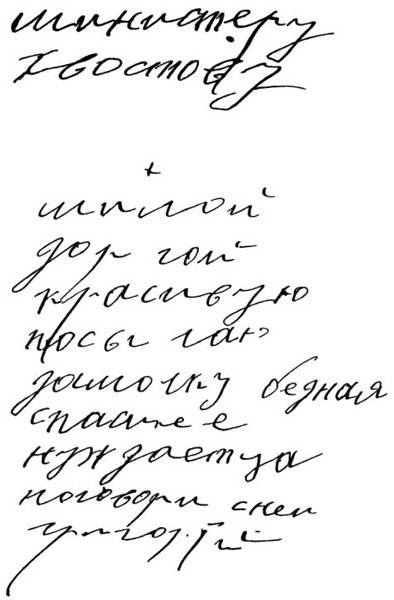 министеру
Хвостову
+
милой
дорогой
красивую
посылаю
дамочку бедная
спаси ее
нуждаетца
поговори с ней
Григорий